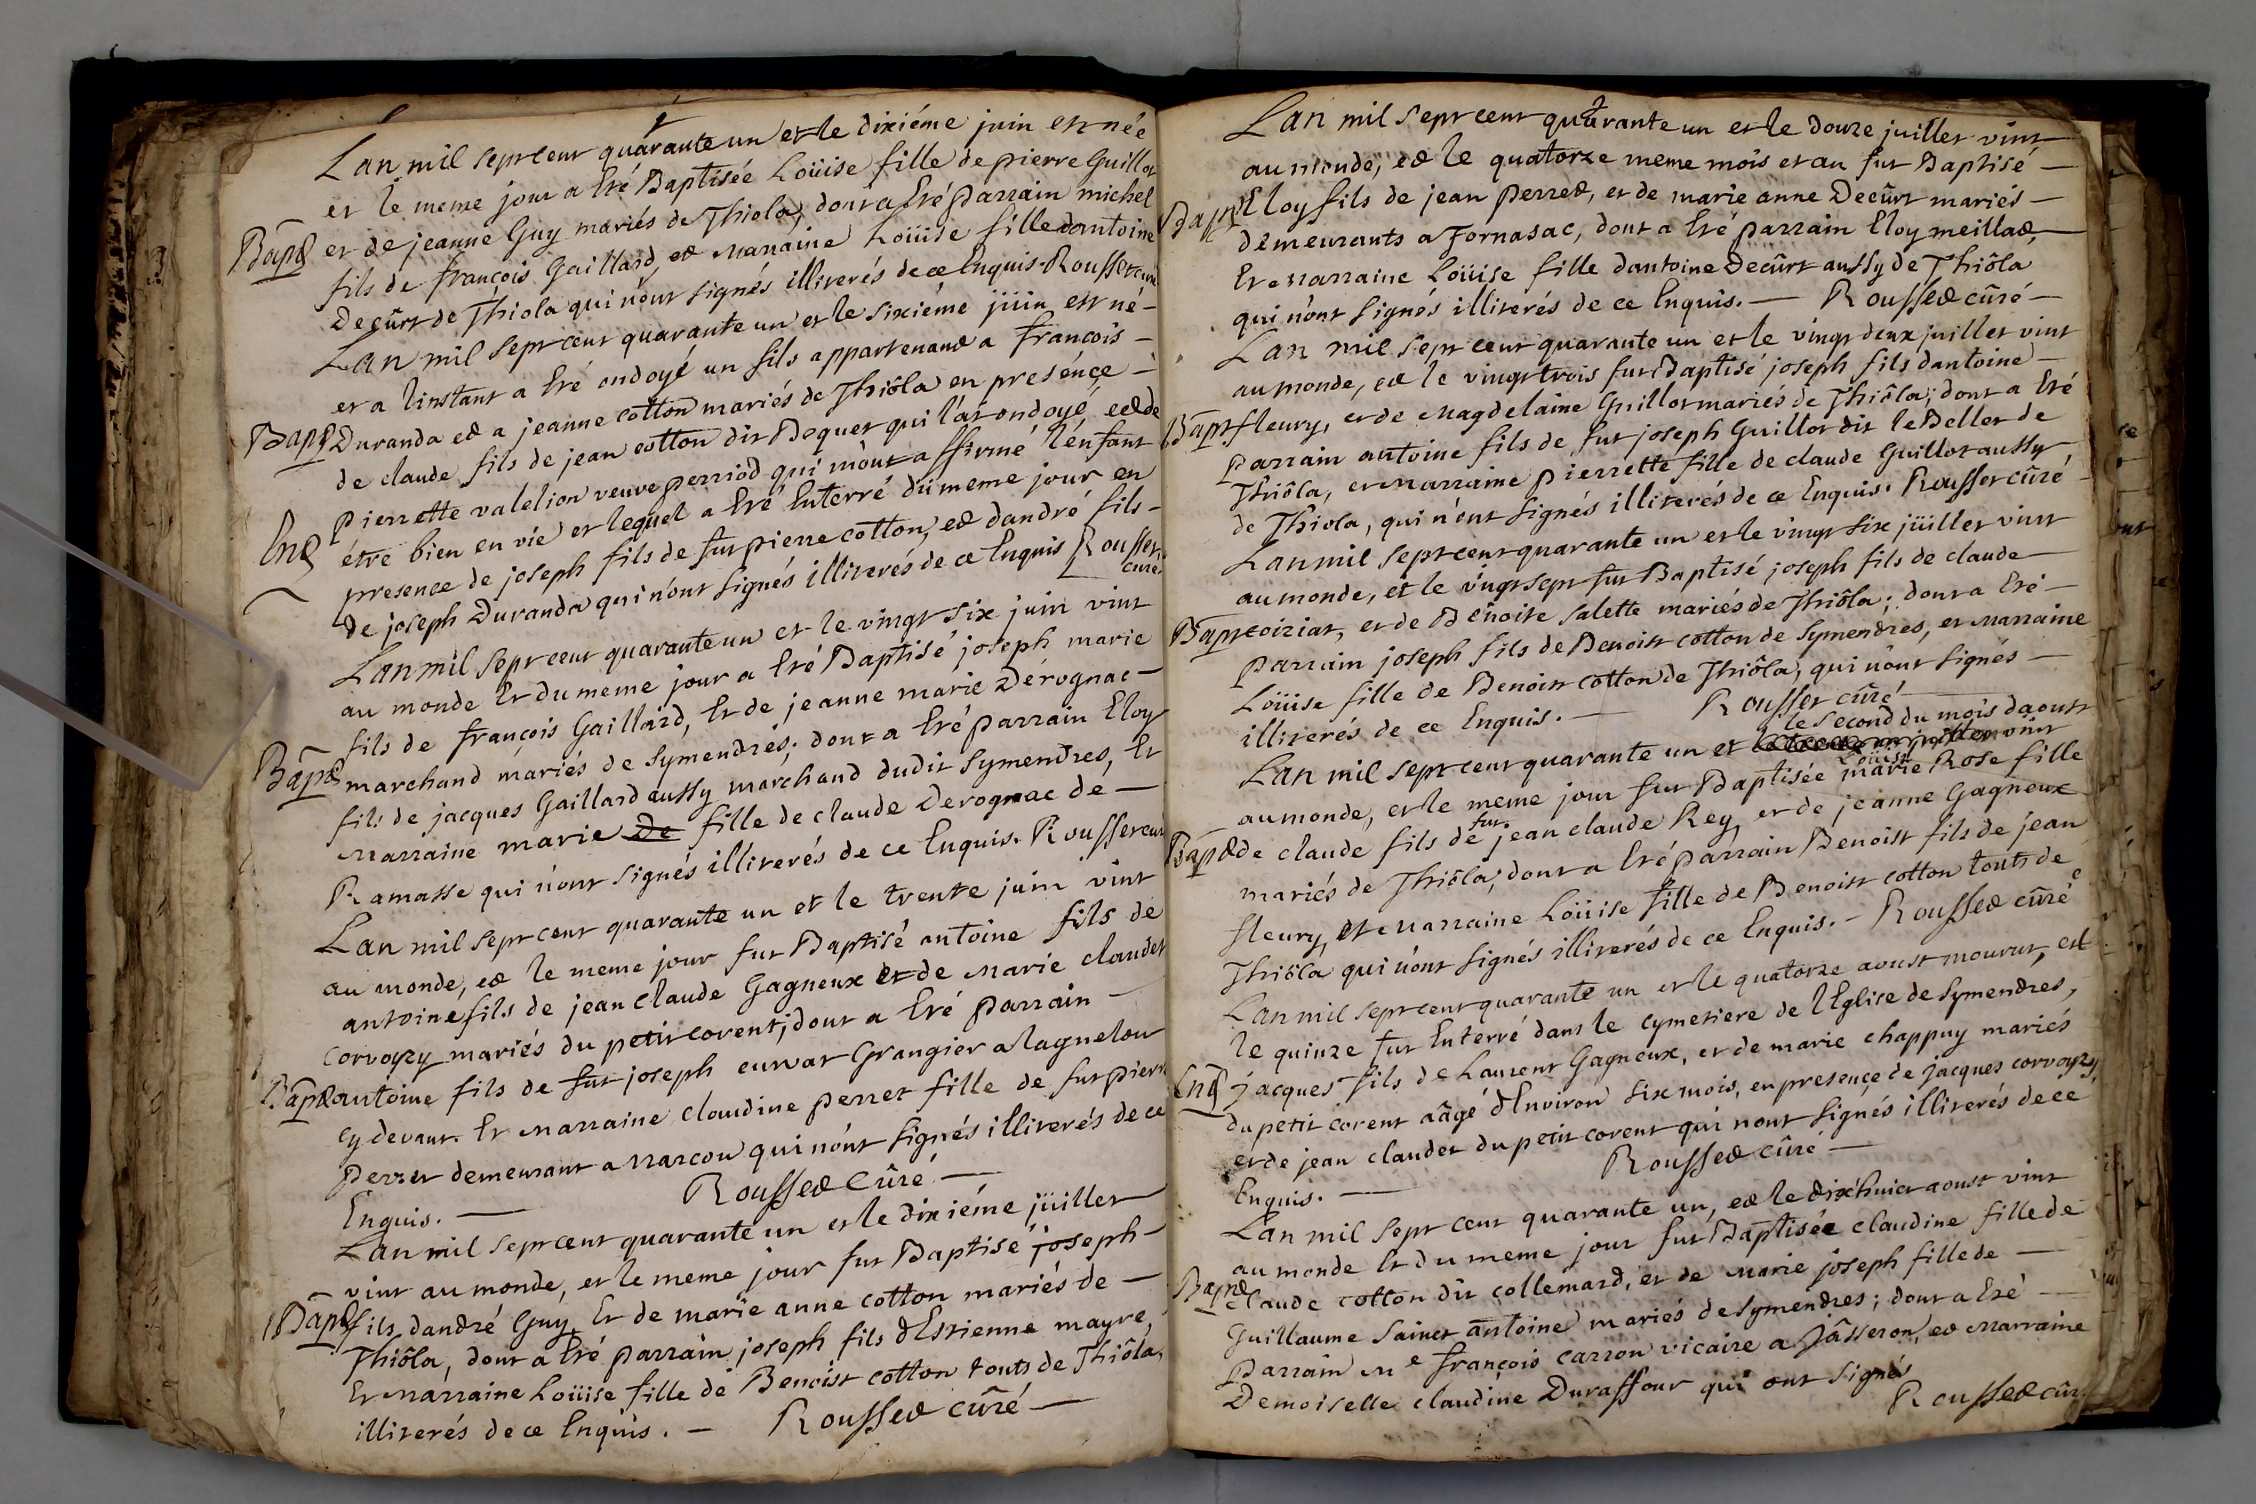 Lan mil sept cent quarante un et le dixiéme juin est née
et le meme jour a Eté Baptisée Loüise fille de pierre Guillot
Bapt et de jeanne Guy mariés de Thiola, dont a Eté parrain michel
fils de françois Gaillard, et Marraine Loüise fille dantoine
Decûrt de Thiola qui nónt signés illiterés de ce Enquis. Rousset curé
Lan mil sept cent quarante un et le sixiéme jüin est né -
et a linstant a Eté ondoyé un fils appartenant a francois -
Bapt Duranda et a jeanne cotton mariés de Thiôla en presénçe -
de claude fils de jean cotton dit Bequet qui la ondoyé, et de
pierrette valelion veuve perriod qui mónt affirmé lénfant
Ent étre bien en vié et lequel a Eté Enterré dü meme jour en
presence de joseph fils de fut pierre cotton, et dandré fils -
de joseph Duranda qui nónt signés illiterés de ce Enquis Rousset
curé
Lan mil sept cent quarante un et le vingt six juin vint
au monde Et du meme jour a Eté Baptisé joseph marie
fils de françois Gaillard, Et de jeanne marie Dérognac -
Bapt marchand mariés de Symendrés; dont a Eté parrain Eloy
fils de jacques Gaillard aussy marchand dudit Symendres, Et
Marraine marie De fille de claude Derognac de -
Ramasse qui nónt signés illiterés de ce Enquis. Rousset curé
Lan mil sept cent quarante un et le trente juin vint
au monde, et le meme jour fut Baptisé antoine fils de
antoine fils de jean claude Gagneux et de Marie claudet
corvoyzy mariés du petit corent; dont a Eté parrain -
Bapt antoine fils de fut joseph curvat Grangier a lagnelou
cy devant. Et Marraine claudine perret fille de fut pierre
perret demeurant a Marcou qui nónt signés illiterés de ce
Enquis. - Rousset Cûré -
Lan mil sept cent quarante un et le dixiéme jüillet
vint au monde, et le meme jour fut Baptisé joseph -
Bapt fils dandré Guy, Et de marie anne cotton mariés de -
Thiôla, dont a Eté parrain joseph fils dEstienne mayre,
Et Marraine Loüise fille de Benoist cotton touts de Thiôla,
illiterés de ce Enquis. - Rousset cûré -
Lan mil sept cent quarante un et le douze juillet vint
au monde, et le quatorze meme mois et an fut Baptisé -
Bapt Eloy fils de jean perret, et de marie anne Decûrt mariés -
demeurants a Tornasac, dont a Eté parrain Eloy meillad,
Et Marraine Loüise fille dantoine Decûrt aussy de Thiôla
qui nónt signés illiterés de ce Enquis. - Rousset cûré -
Lan mil sept cent quarante un et le vingt deux juillet vint
au monde, et le vingt trois fut Baptisé joseph fils dantoine -
Bapt fleury, et de Magdelaine Guillot mariés de Thiôla; dont a Eté
parrain antoine fils de fut joseph Guillot dit le Bellet de
Thiôla, et Marraine pierrette fille de claude Guillot aussy
de Thiola, qui nónt signés illiterés de ce Enquis. Rousset cûré
Lan mil sept cent quarante un et le vingt six jüillet vint
au monde, et le vingt sept fut Baptisé joseph fils de claude -
Bapt coiziat, et de Benoite salette mariés de Thiôla; dont a Eté -
parrain joseph fils de Benoist cotton de Symendres, et Marraine
Loüise fille de Benoist cotton de Thiôla, qui nónt signés -
illiterés de ce Enquis. - Rousset cûré -
le second du mois daoust
Lan mil sept cent quarante un et vint
Loüise
au monde, et le meme jour fut Baptisée marie Rose fille
Bapt de claude fils de fut jean claude Rey, et de jeanne Gagneux
mariés de Thiôla, dont a Eté parrain Benoist fils de jean
fleury, et Marraine Loüise fille de Benoist cotton touts de
Thiôla qui nónt signés illiterés de ce Enquis. - Rousset cûré
Lan mil sept cent quarante un et le quatorze aoust mourut, et
le quinze fut Enterré dans le cymetiere de lEglise de Symendres,
Ent jacques fils de Laurent Gagneux, et de marie chappuy mariés
du petit corent aâgé dEnviron six mois, en presençe de jacques corvoyzy,
et de jean claudet du petit corent qui nont signés illiterés de ce
Enquis. - Rousset cûré -
Lan mil sept cent quarante un, et le dixhuict aoust vint
au monde Et du meme jour fut Baptisée claudine fille de
Bapt claude cotton dit collemard, et de Marie joseph fille de -
Guillaume Sainct antoine mariés de Symendres; dont a Eté -
parrain Me françois carron vicaire a Jâsseron, et Marraine
Demoiselle claudine Duraffour qui ont signés
Rousset cûré